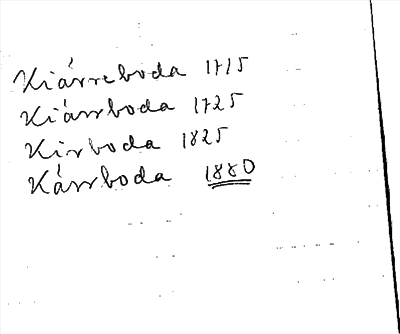 Kiárreboda 1715
Kiárrboda 1725
Kirboda 1825
Kárrboda 1880